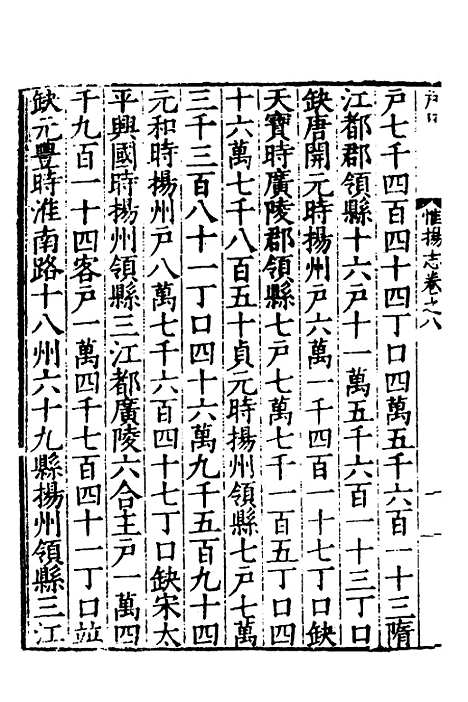 戶口
惟揚志卷之八
一
戶七千四百四十四丁口四萬五千六百一十三隋
江都郡領縣十六戶十一萬五千六百一十三丁口
缺唐開元時揚州戶六萬一千四百一十七丁口缺
天寶時廣陵郡領縣七戶七萬七千一百五丁口四
十六萬七千八百五十貞元時揚州領縣七戶七萬
三千三百八十一丁口四十六萬九千五百九十四
元和時揚州戶八萬七千六百四十七丁口缺宋太
平興國時揚州領縣三江都廣陵六合主戶一萬四
千九百一十四客戶一萬四千七百四十一丁口竝
缺元豐時淮南路十八州六十九縣揚州領縣三江